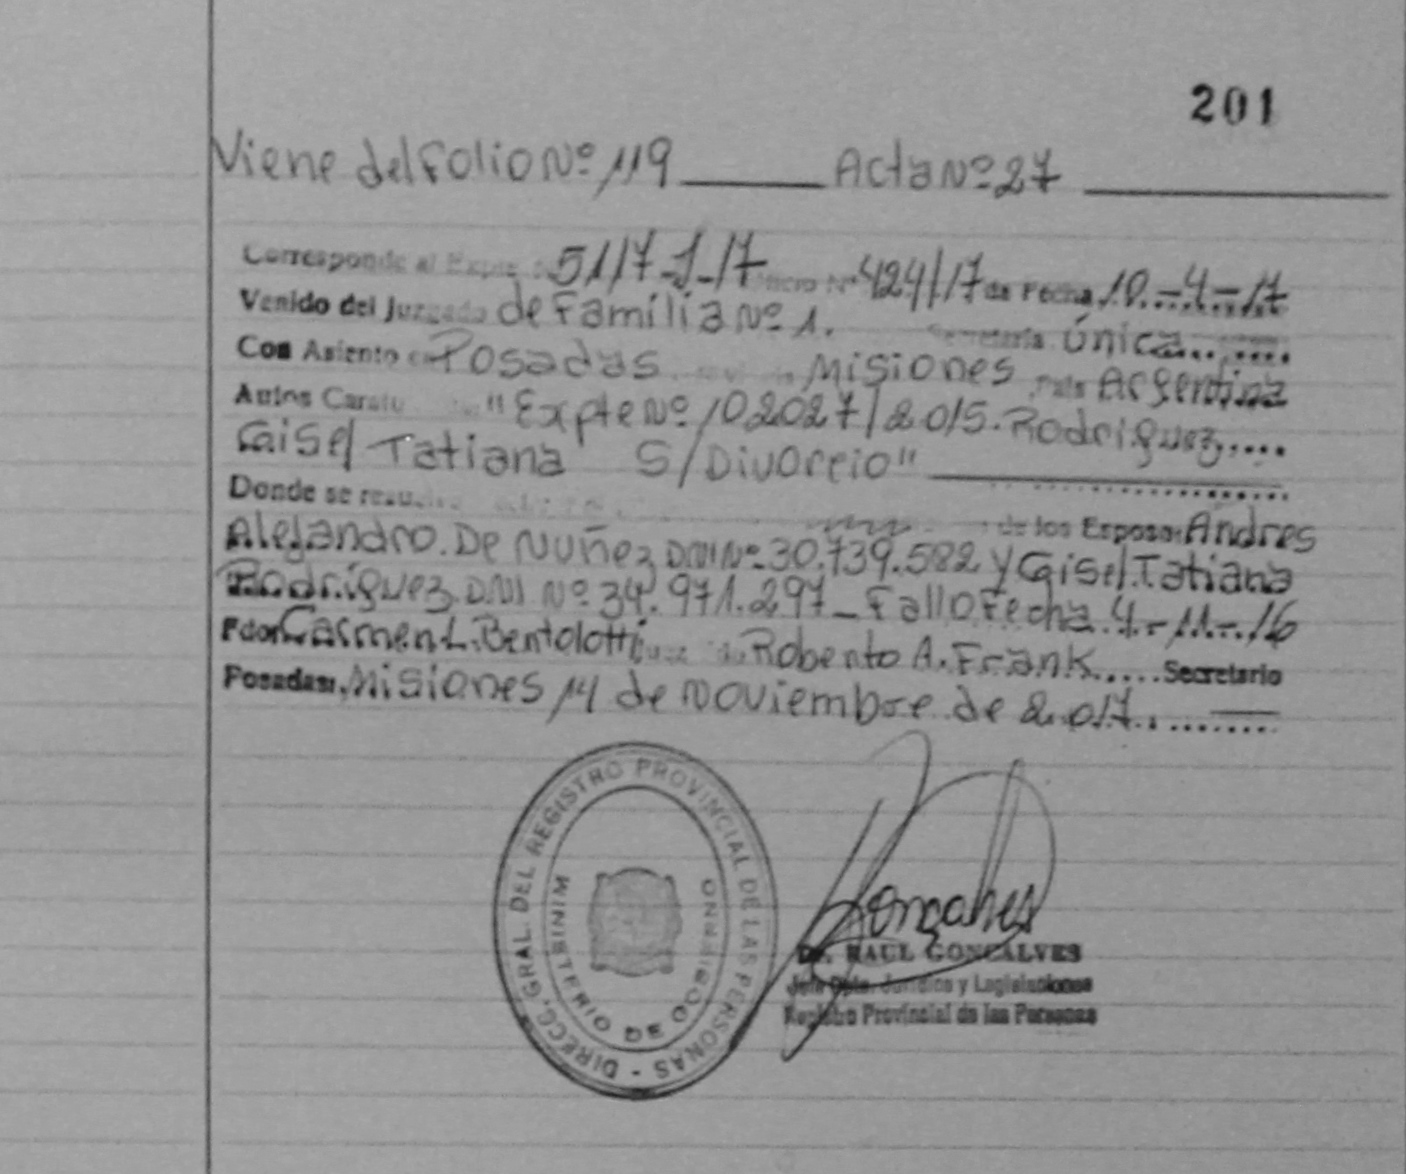 201
Viene del Folio Nº 119 Acta Nº 27
Corresponde al Expte 51/7-J-17 Oficio Nº 424/17 de Fecha 10.-4-.17
Venido del Juzgado de Familia Nº 1. Secretaría Única
Con Asiento en Posadas Misiones País Argentina
Autos Caratu "Expte Nº 102027/2015. Rodriguez
Gisel Tatiana S/Divorcio"
Donde se resu de los Esposos Andres
Alejandro. De Nuñez DNI Nº 30.739.582 y Gisel. Tatiana
Rodríguez. DNI Nº 34.971.297_ Fallo Fecha 4-.11-.16
Fdor. Carmen L. Bentolotti Juez Robento A. Frank..... Secretario
Posadas, Misiones 14 de Noviembre de 2.017.
DIRECC. GRAL. DEL REGISTRO PROVINCIAL DE LAS PERSONAS -
MINISTERIO DE GOBIERNO
Goncalves
Dr. RAUL GONCALVES
Jefe Dpto. Jurídico y Legislaciones
Registro Provincial de las Personas